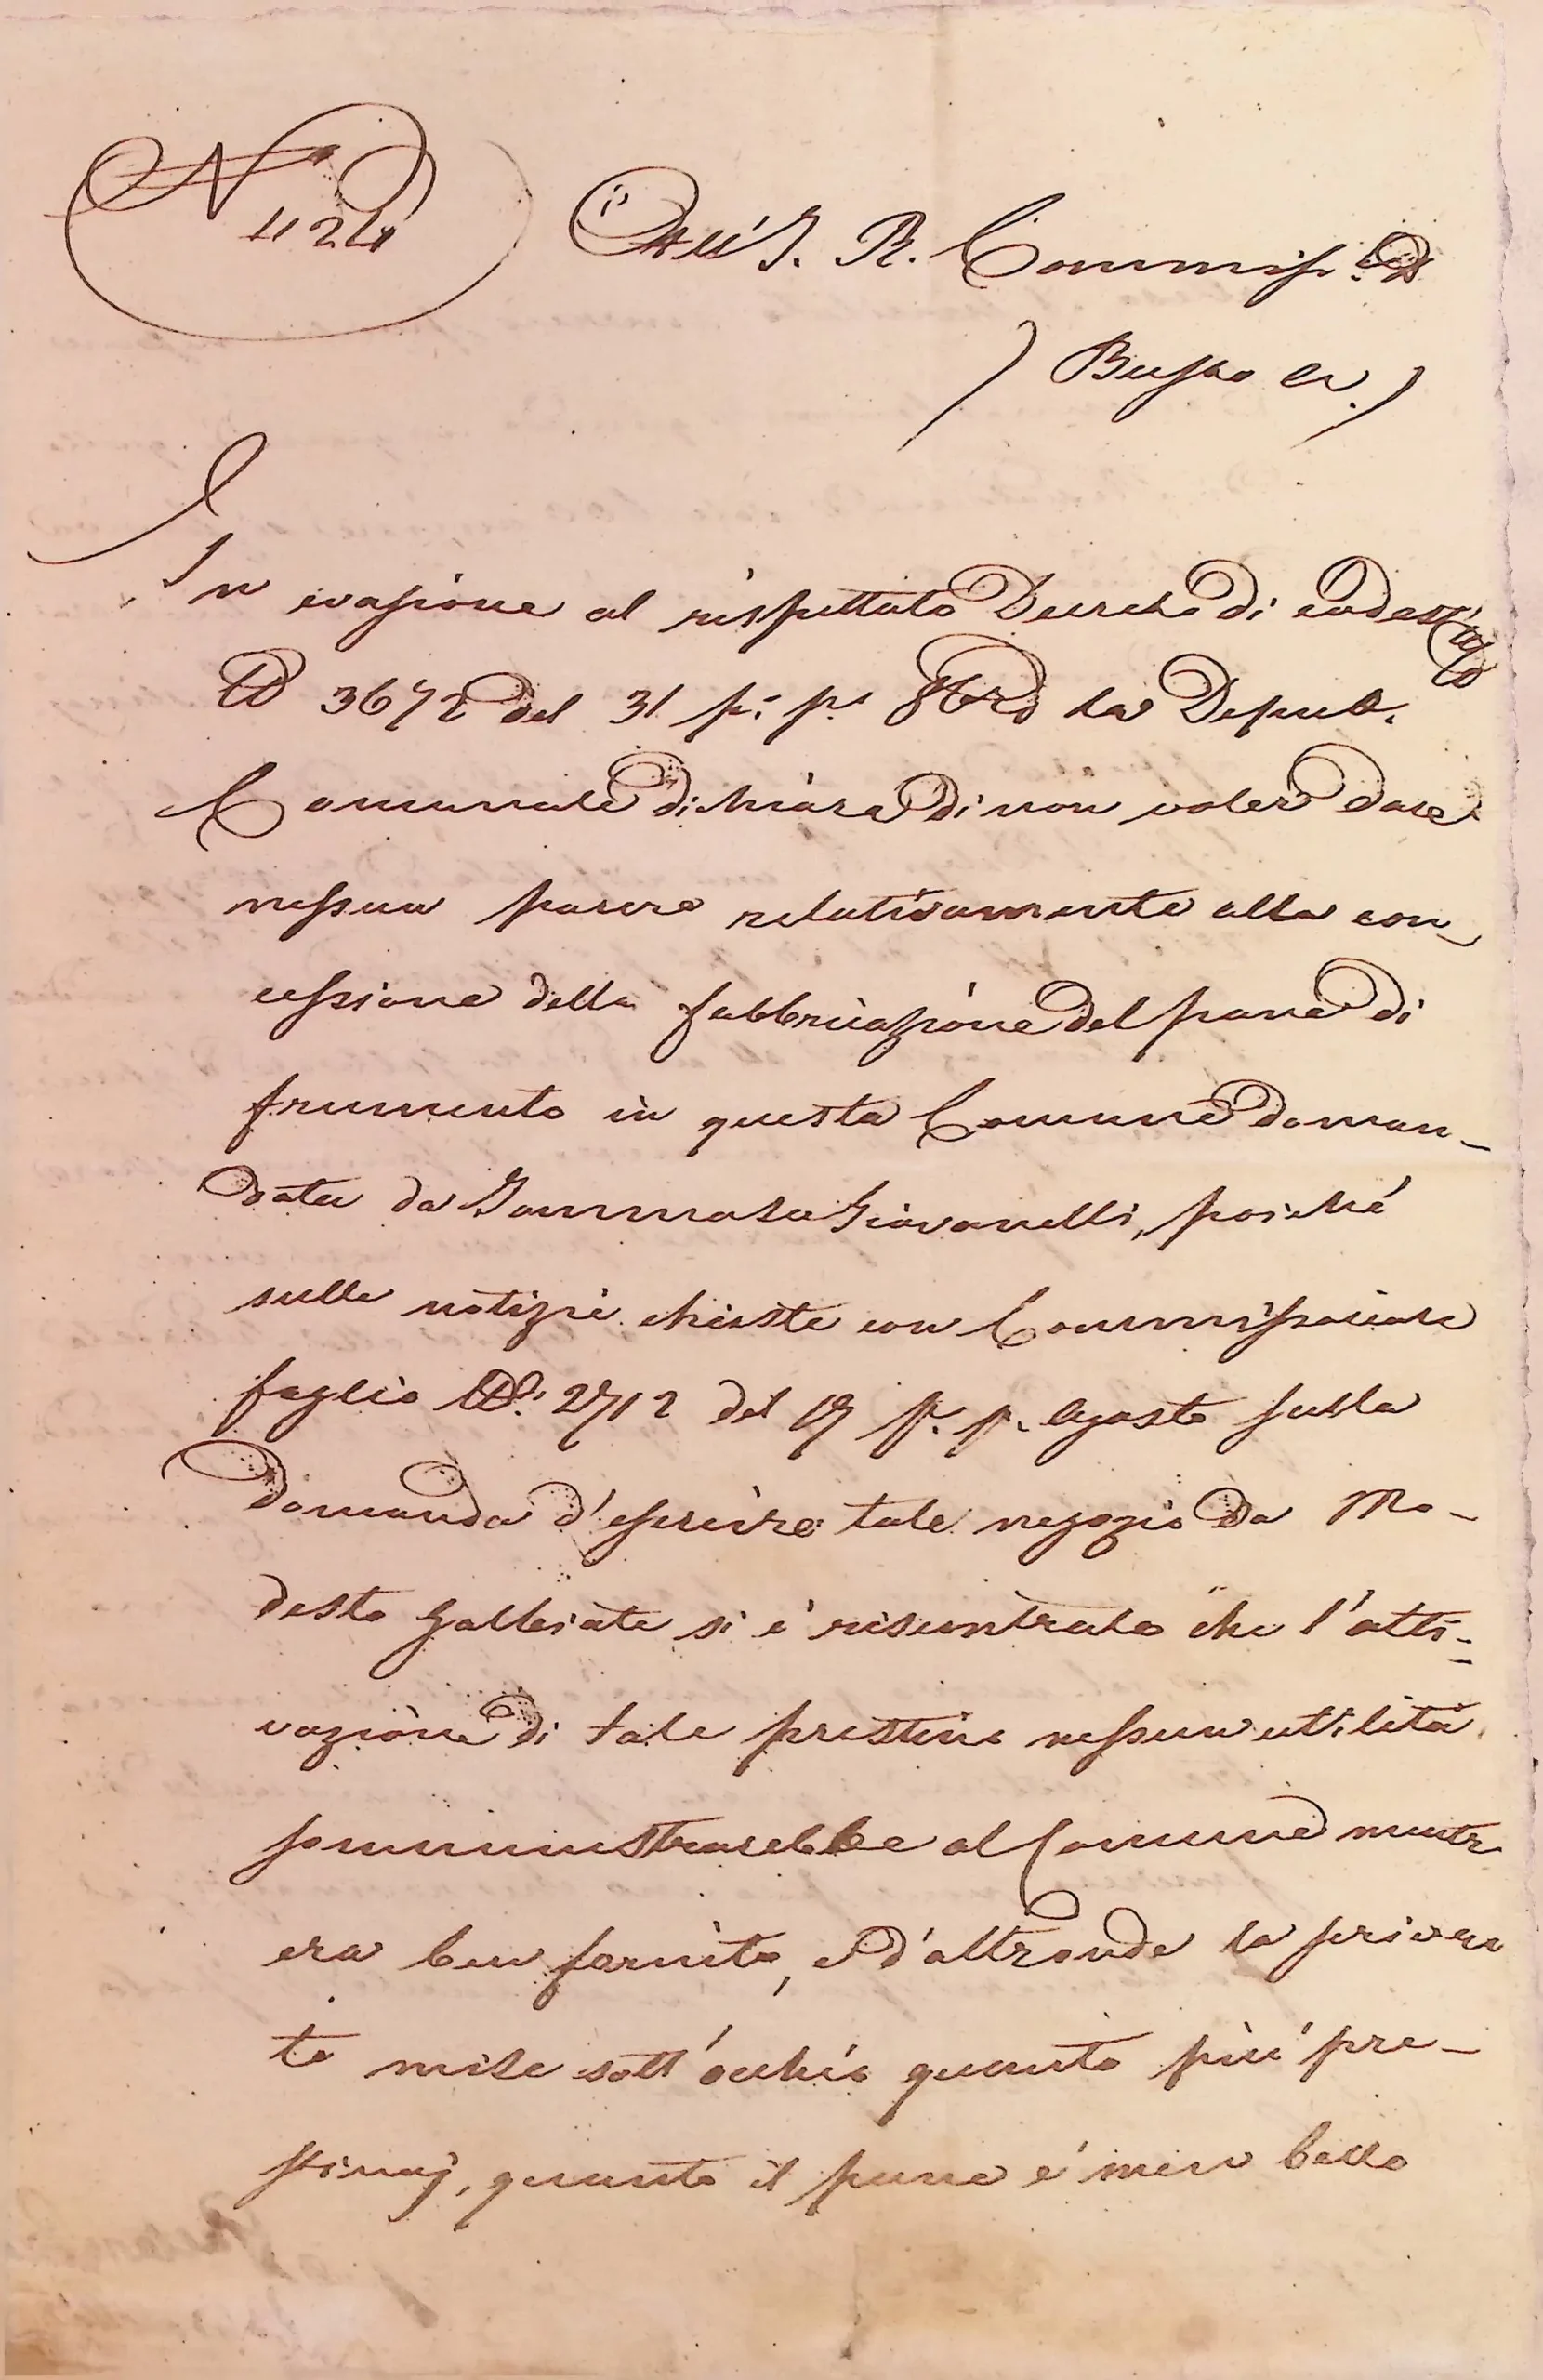 N.°
424
All'I. R. Commiss.
) Busto A. )
In evasione al rispettato Decreto di codest'
N 3672 del 31 p.° p.° 8bre la Deput.
Comunale dichiara di non voler dare
nessun parere relativamente alla con_
cessione della fabbricazione del pane di
frumento in questa Comune doman_
data da Tommaso Giovanelli, poiché
sulle notizie chieste con Commissariale
foglio N.° 2712 del 19 p. p. Agosto sulla
domanda d'esercire tale negozio da Mo_
desto Galleiate si è riscontrato che l'atti_
vazione di tale prestino nessun utilità
somministrarebbe al Comune mentr
era ben fornito, e d'altronde la priva
to mise sott'occhio quanto più pre_
stinaj, quanto il pane è men bello